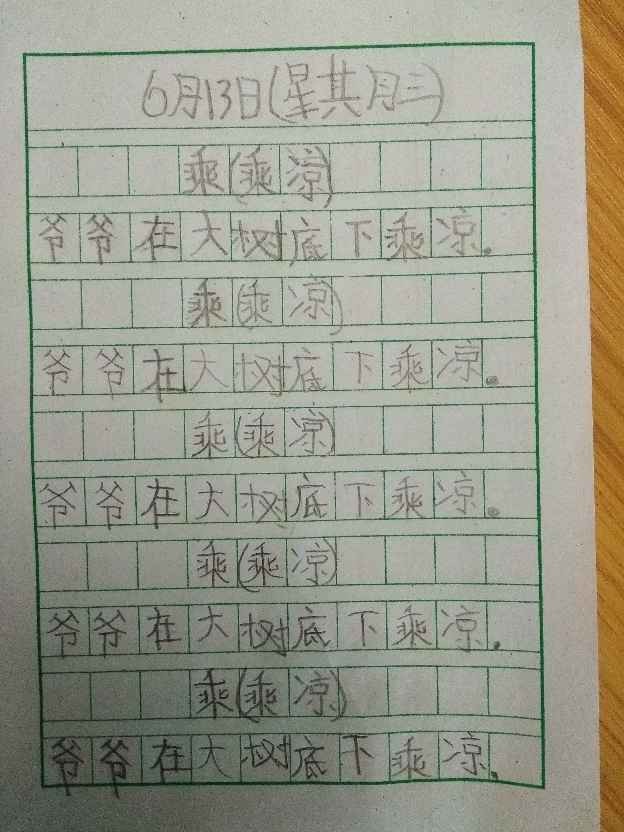 6月13日(星期三)
乘(乘凉)
爷爷在大树底下乘凉。
乘(乘凉)
爷爷在大树底下乘凉。
乘(乘凉)
爷爷在大树底下乘凉。
乘(乘凉)
爷爷在大树底下乘凉.
乘(乘凉)
爷爷在大树底下乘凉.